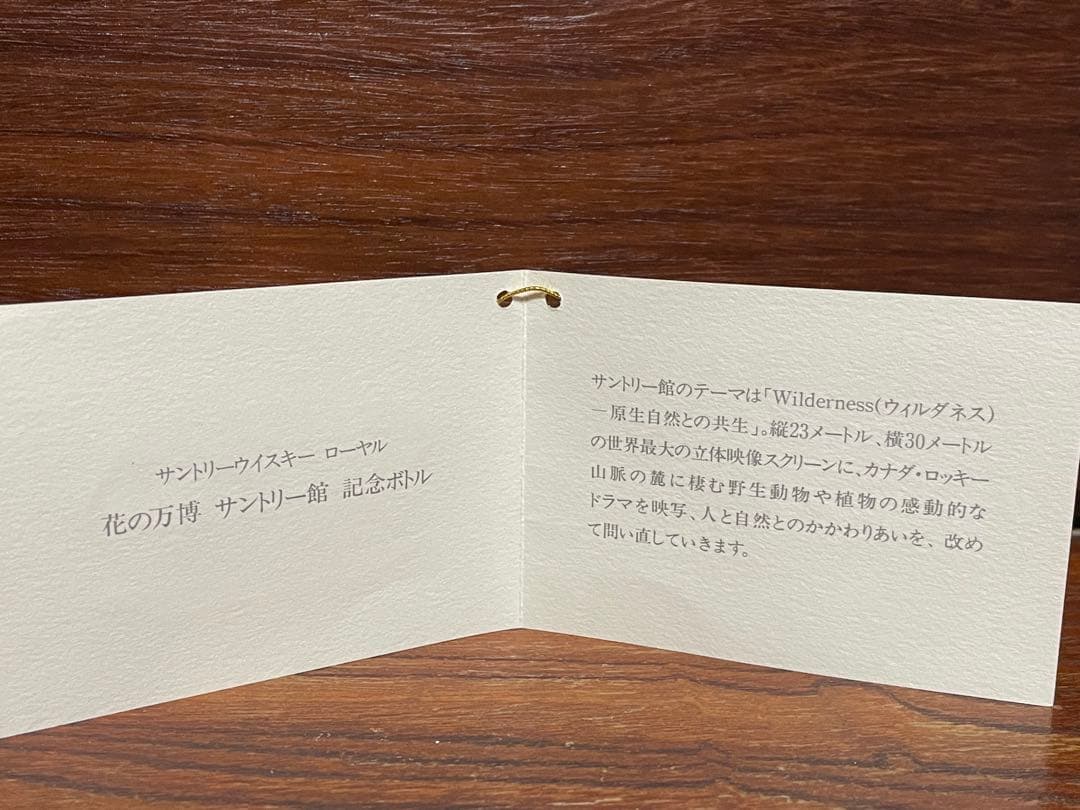 サントリーウイスキー ローヤル
花の万博 サントリー館 記念ボトル
サントリー館のテーマは「Wilderness(ウィルダネス)
―原生自然との共生」。縦23メートル、横30メートル
の世界最大の立体映像スクリーンに、カナダ・ロッキー
山脈の麓に棲む野生動物や植物の感動的な
ドラマを映写、人と自然とのかかわりあいを、改め
て問い直していきます。